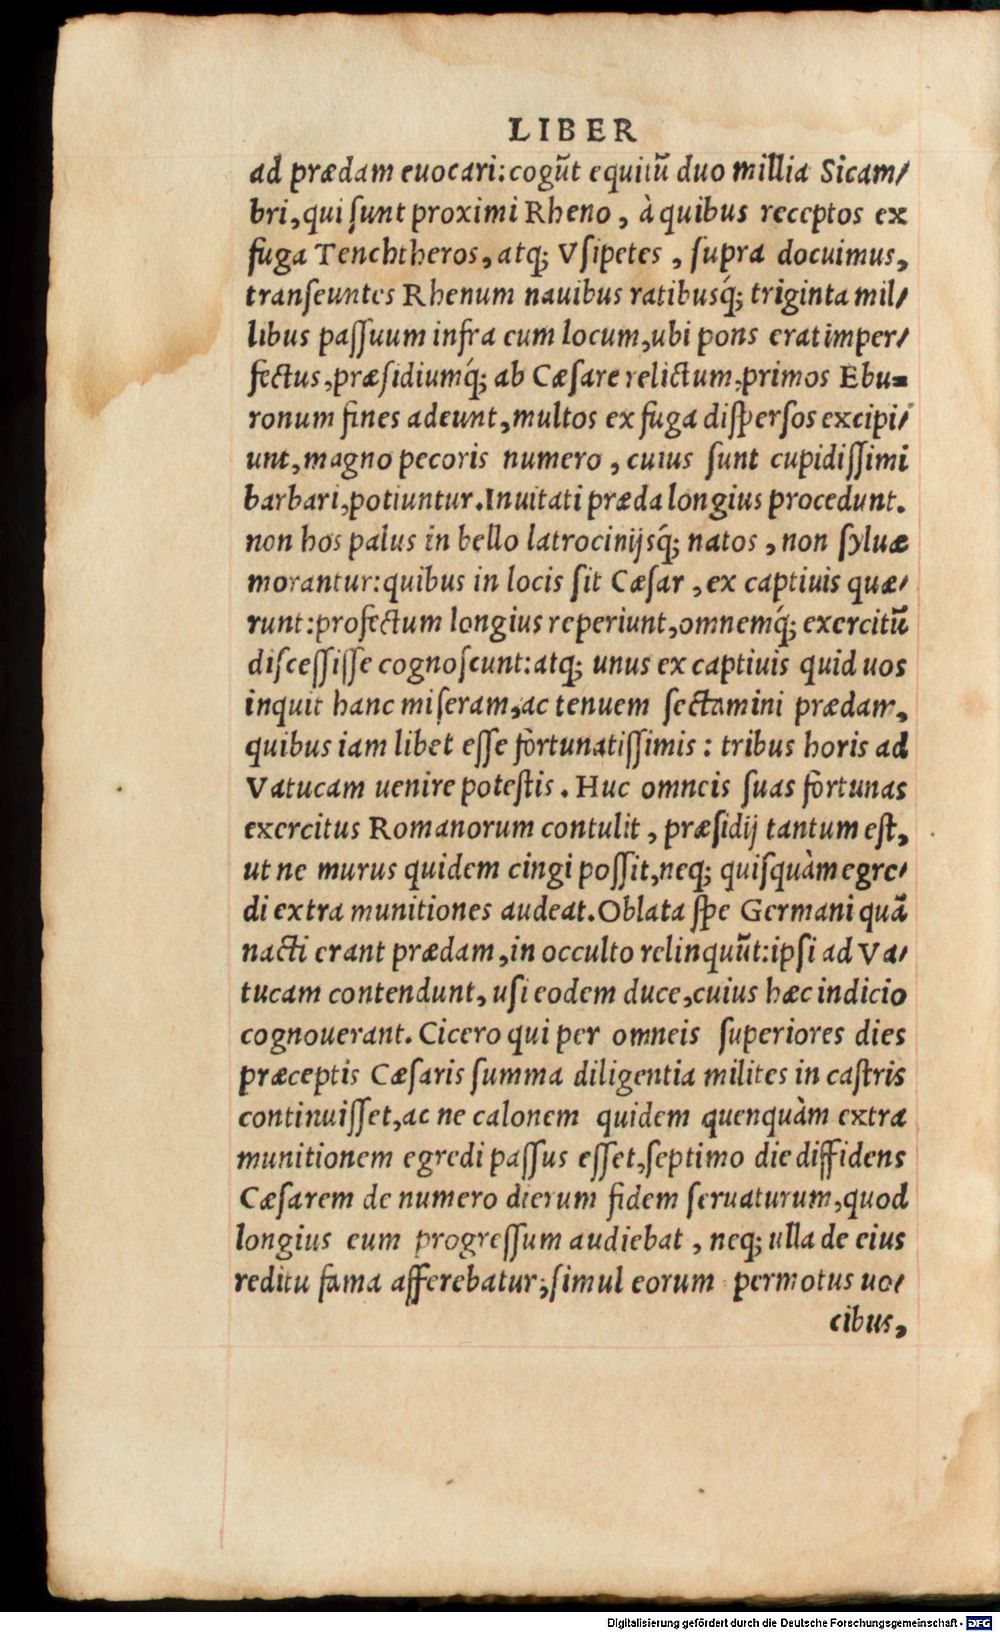 LIBER
ad prædam euocari:cogūt equitū duo millia Sicam/
bri,qui ſunt proximi Rheno, à quibus receptos ex
fuga Tenchtheros,atq; Vſipetes, ſupra docuimus,
tranſeuntes Rhenum nauibus ratibusq́; triginta mil/
libus paſſuum infra eum locum,ubi pons erat imper/
fectus,præſidiumq́; ab Cæſare relictum,primos Ebu=
ronum fines adeunt,multos ex fuga diſperſos excipi/
unt,magno pecoris numero, cuius ſunt cupidiſſimi
barbari,potiuntur.Inuitati præda longius procedunt.
non hos palus in bello latrocinijsq́; natos, non ſyluæ
morantur:quibus in locis ſit Cæſar, ex captiuis quæ/
runt:profectum longius reperiunt,omnemq́; exercitū
diſceſſiſſe cognoſcunt:atq; unus ex captiuis quid uos
inquit hanc miſeram,ac tenuem ſectamini prædam,
quibus iam libet eſſe fortunatiſſimis: tribus horis ad
Vatucam uenire poteſtis. Huc omneis ſuas fortunas
exercitus Romanorum contulit, præſidij tantum eſt,
ut ne murus quidem cingi poſſit,neq; quiſquàm egre/
di extra munitiones audeat.Oblata ſpe Germani quā
nacti erant prædam,in occulto relinquūt:ipſi ad Va/
tucam contendunt, uſi eodem duce,cuius hæc indicio
cognouerant. Cicero qui per omneis ſuperiores dies
præceptis Cæſaris ſumma diligentia milites in caſtris
continuiſſet,ac ne calonem quidem quenquàm extra
munitionem egredi paſſus eſſet,ſeptimo die diffidens
Cæſarem de numero dierum fidem ſeruaturum,quod
longius eum progreſſum audiebat, neq; ulla de eius
reditu fama afferebatur;ſimul eorum permotus uo/
cibus,
Digitalisierung gefördert durch die Deutsche Forschungsgemeinschaft - DFG